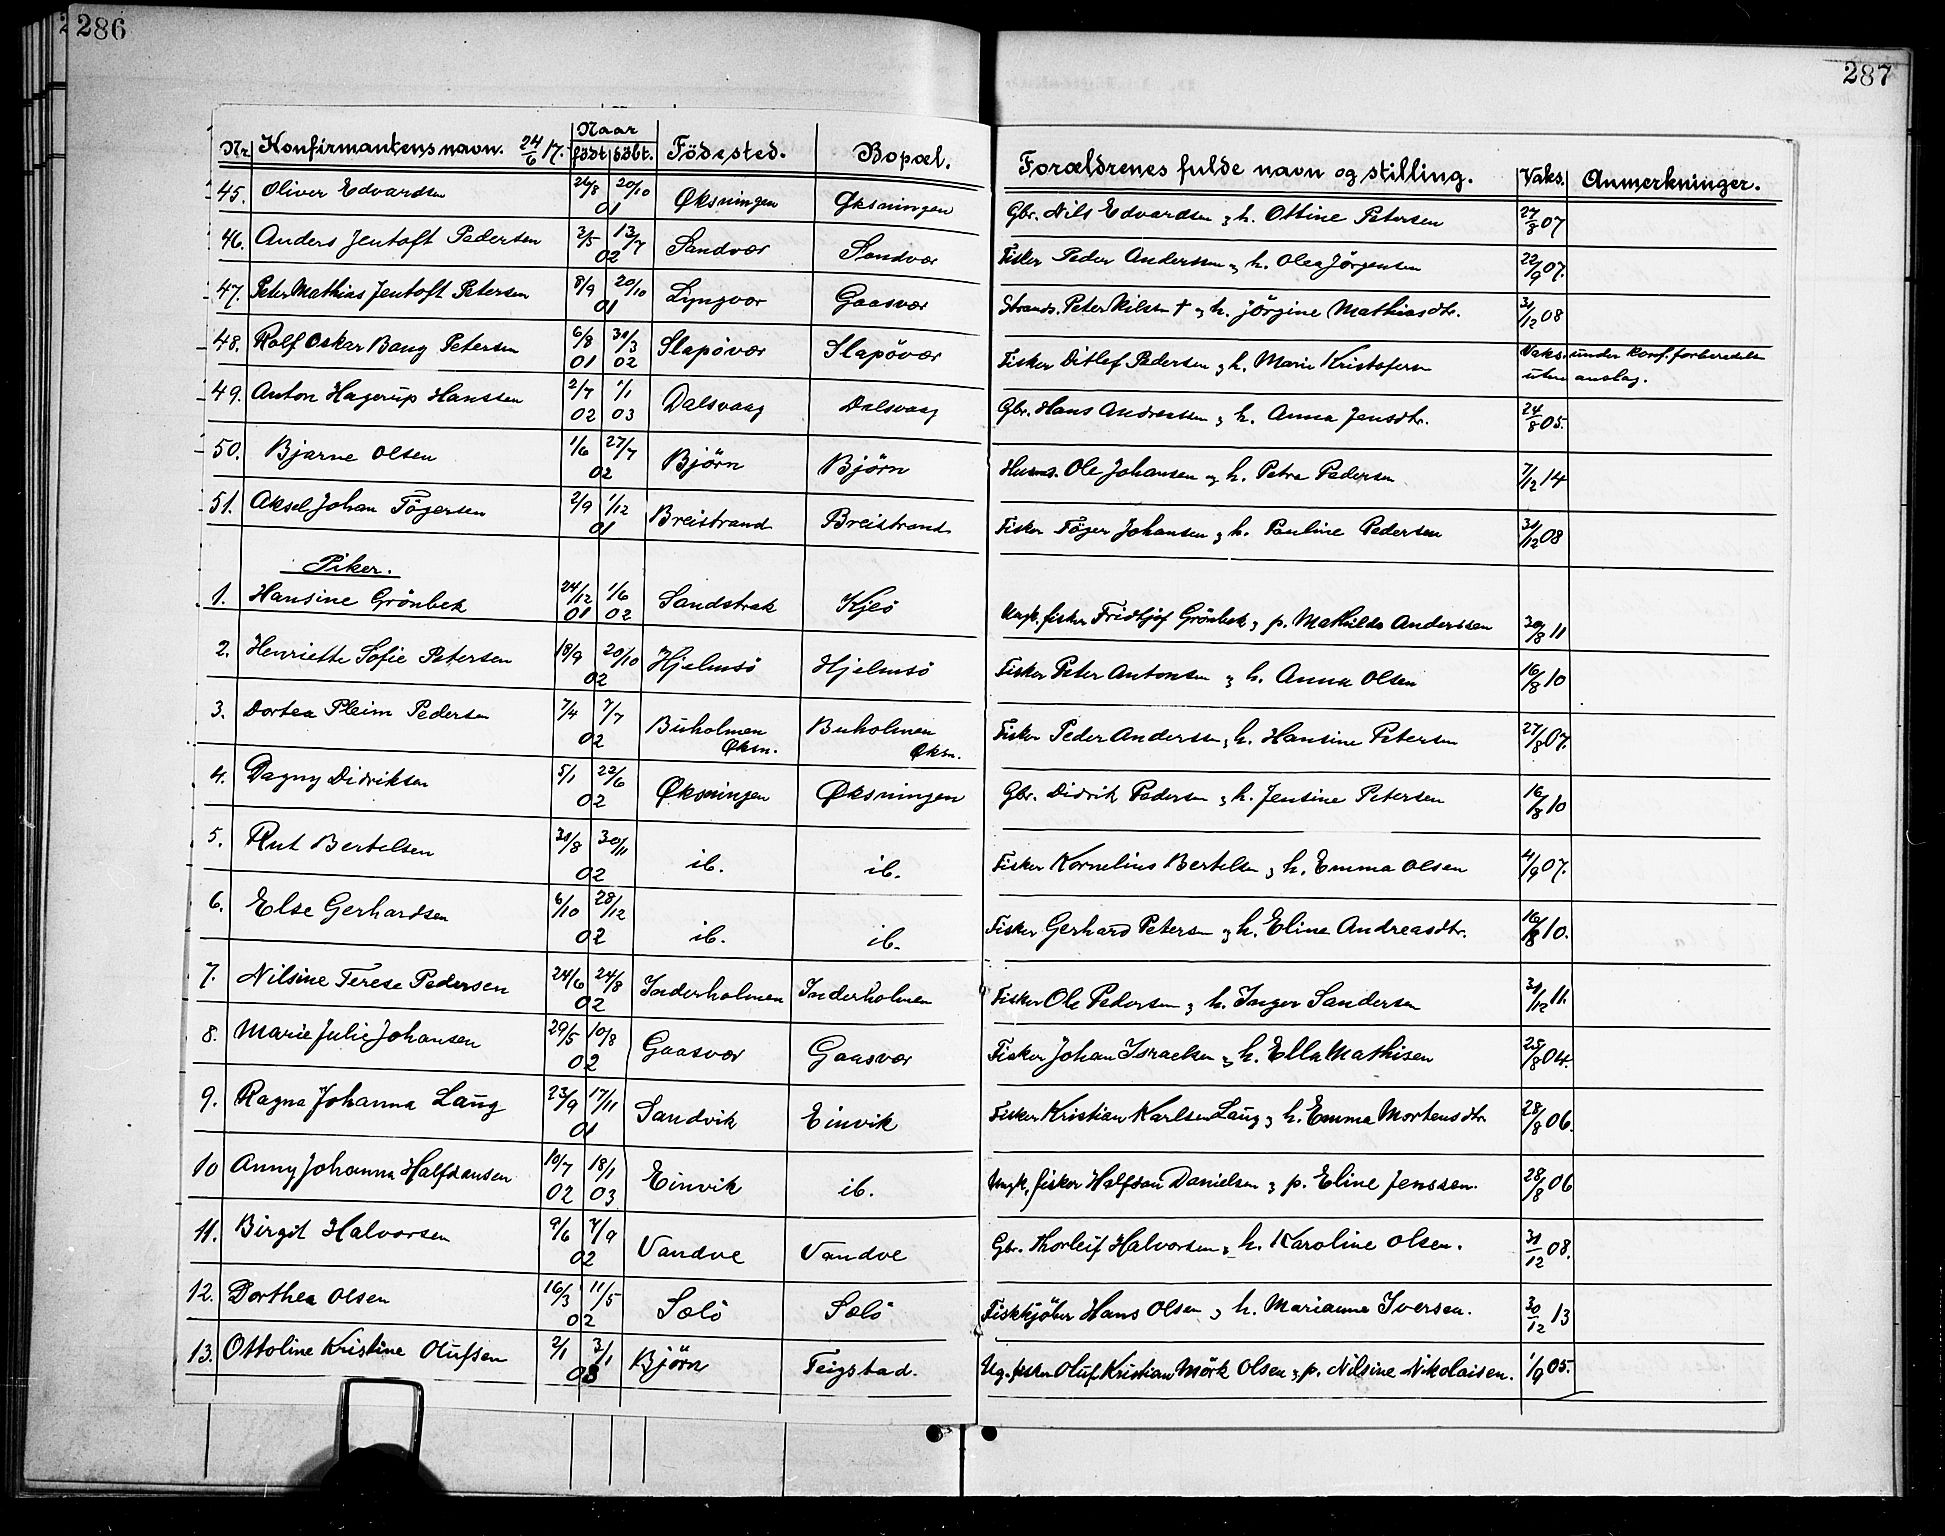 286
287
Nr. Konfirmantens navn. 24/6 17. Naar født døbt. Födested. Bopæl. Forældrenes fulde navn og stilling. Vaks. Anmerkninger.
45. Oliver Edvardsen 26/8 20/10 01 Øksningen Øksningen Gbr. Nils Edvardsen og h. Ottine Petersen 27/8 07
46. Anders Jentoft Pedersen 2/5 13/7 02 Sandvær Sandvær Fisker Peder Anderssen og h. Olea Jörgensen 22/9 07.
47. Peter Mathias Jentoft Petersen 8/9 20/10 01 Lyngvær Gaasvær Strands. Peter Nilsen † og h. Jörgine Mathiasdtr. 31/12 08
48. Rolf Oskar Bang Petersen 6/8 01 31/3 02 Slapövær Slapövær Fisker Ditlef Pedersen og h. Marie Kristofersen Vaks. under konf. forberedelse
uten anslag.
49. Anton Hagerup Hanssen 2/7 02 1/1 03 Dalsvaag Dalsvaag Gbr. Hans Andreassen og h. Anna Jensdtr. 24/8 05.
50. Bjarne Olsen 1/6 27/7 02 Björn Björn Husm. Ole Johansen og h. Petra Pedersen 7/12 14
51. Aksel Johan Tögersen 2/9 1/12 01 Breistrand Breistrand Fisker Töger Johansen og h. Pauline Pedersen 31/12 08
Piker.
1. Hansine Grönbek 24/12 01 1/6 02 Sandstrak Kjeö Ungk. fisker Fridtjof Grönbek og p. Mathilde Anderssen 30/8 11
2. Henriette Sofie Petersen 18/9 20/10 02 Hjelmsö Hjelmsö Fisker Peter Antonsen og h. Anna Olsen 16/8 10
3. Dortea Pleim Pedersen 7/4 7/7 02 Buholmen Øksn. Buholmen Øksn. Fisker Peder Anderssen og h. Hansine Petersen 27/8 07.
4. Dagny Didriksen 5/1 22/6 02 Øksningen Øksningen Gbr. Didrik Pedersen og h. Jensine Petersen 16/8 10
5. Rut Bertelsen 31/8 30/11 02 ib. ib. Fisker Kornelius Bertelsen og h. Emma Olsen 4/9 07.
6. Else Gerhardsen 6/10 28/12 02 ib. ib. Fisker Gerhard Petersen og h. Eline Andreasdtr. 16/8 10.
7. Nilsine Terese Pedersen 24/6 24/8 02 Inderholmen Inderholmen Fisker Ole Pedersen og h. Inger Sandersen 31/12 11.
8. Marie Julie Johansen 29/5 10/8 02 Gaasvær Gaasvær Fisker Johan Israelsen og h. Ella Mathisen 25/8 04.
9. Ragna Johanna Laug 23/9 17/11 01 Sandvik Einvik Fisker Kristian Karlsen Laug og h. Emma Mortensdtr. 28/8 06.
10 Anny Johanna Halfdansen 10/7 02 18/1 03 Einvik ib. Ungk. fisker Halfdan Danielsen og p. Eline Jenssen. 28/8 06
11. Birgit Halvorsen 9/6 7/9 02 Vandve Vandve Gbr. Thorleif Halvorsen og h. Karoline Olsen. 31/12 08.
12. Dorthea Olsen 16/3 11/5 02 Sælö Sælö Fiskkjöber Hans Olsen og h. Marianne Iversen. 30/12 13
13. Ottoline Kristine Olufsen 2/1 3/1 03 Björn Teigstad. Ug. fisker Oluf Kristian Mörk Olsen og p. Nilsine Nikolaisen. 1/9 05.